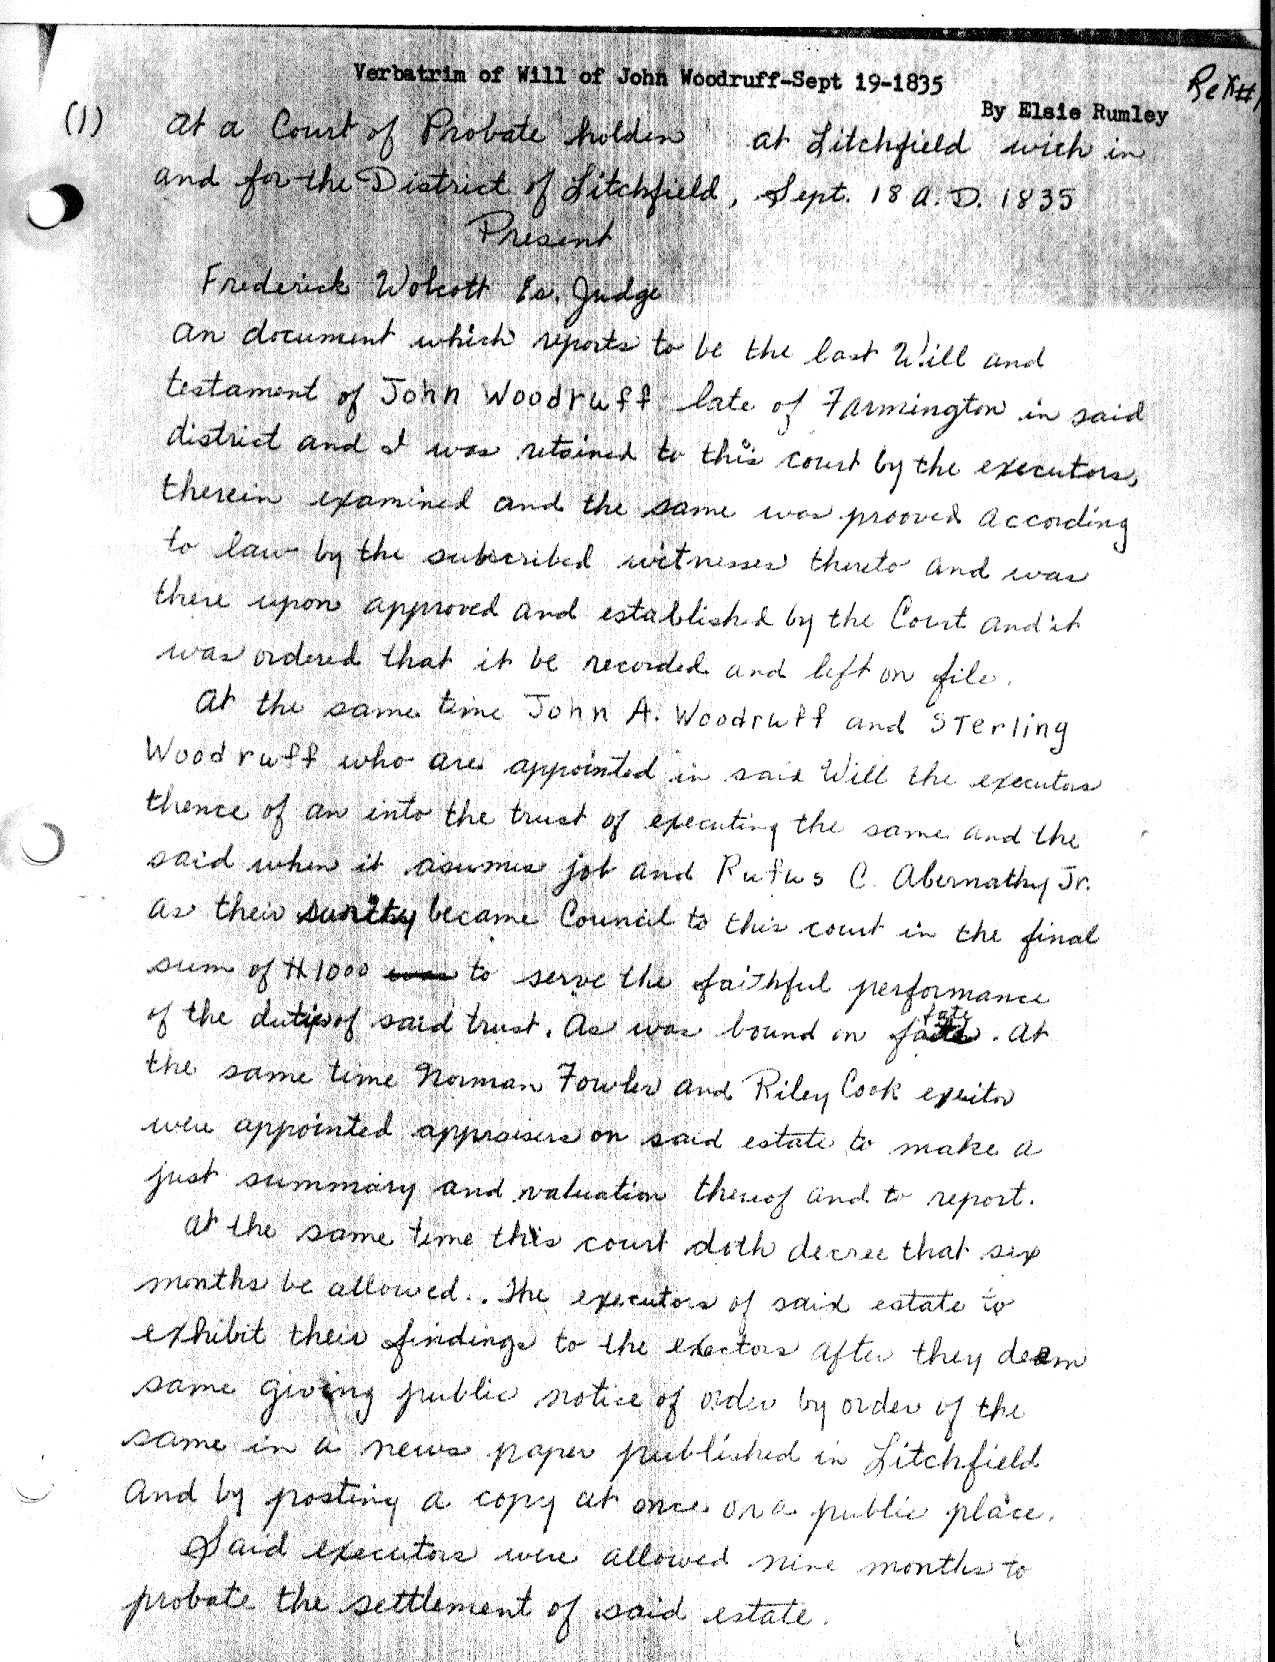 Verbatrim of Will of John Woodruff-Sept 19-1835
By Elsie Rumley
(1)
At a Court of Probate holden at Litchfield wich in
and for the District of Litchfield, Sept. 18 A.D. 1835
Present
Frederick Wolcott Es. Judge
An document which reports to be the last Will and
testament of John Woodruff late of Farmington in said
district and I was retained to this court by the executors,
therein examined and the same was prooved according
to law by the subscribed witnesses thereto and was
there upon approved and established by the Court and it
was ordered that it be recorded and left on file.
At the same time John A. Woodruff and Sterling
Woodruff who are appointed in said Will the executors
thence of an into the trust of executing the same and the
said when it asumes job and Rufus C. Abernathy Jr.
as their surity became Council to this court in the final
sum of $1000 to serve the faithful performance
of the duties of said trust. As was bound on . At
the same time Norman Fowler and Riley Cook
were appointed appraisers on said estate to make a
just summary and valuation thereof and to report.
At the same time this court doth decree that six
months be allowed.. The executors of said estate to
exhibit their findings to the after they deem
same giving public notice of order by order of the
same in a news paper published in Litchfield
and by posting a copy at once on a public place.
Said executors were allowed nine months to
probate the settlement of said estate.